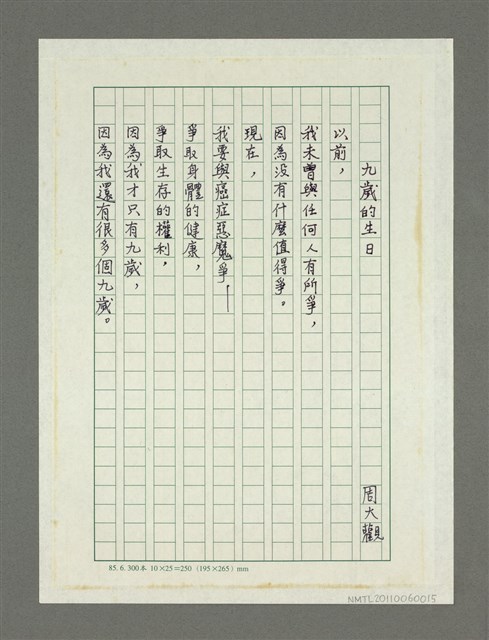 九歲的生日
周大觀
以前，
我未曾與任何人有所爭，
因為沒有什麼值得爭。
現在，
我要與癌症惡魔爭──
爭取身體的健康，
爭取生存的權利，
因為我才只有九歲，
因為我還有很多個九歲。
85. 6. 300本 10×25=250 (195×265) mm
NMTL20110060015